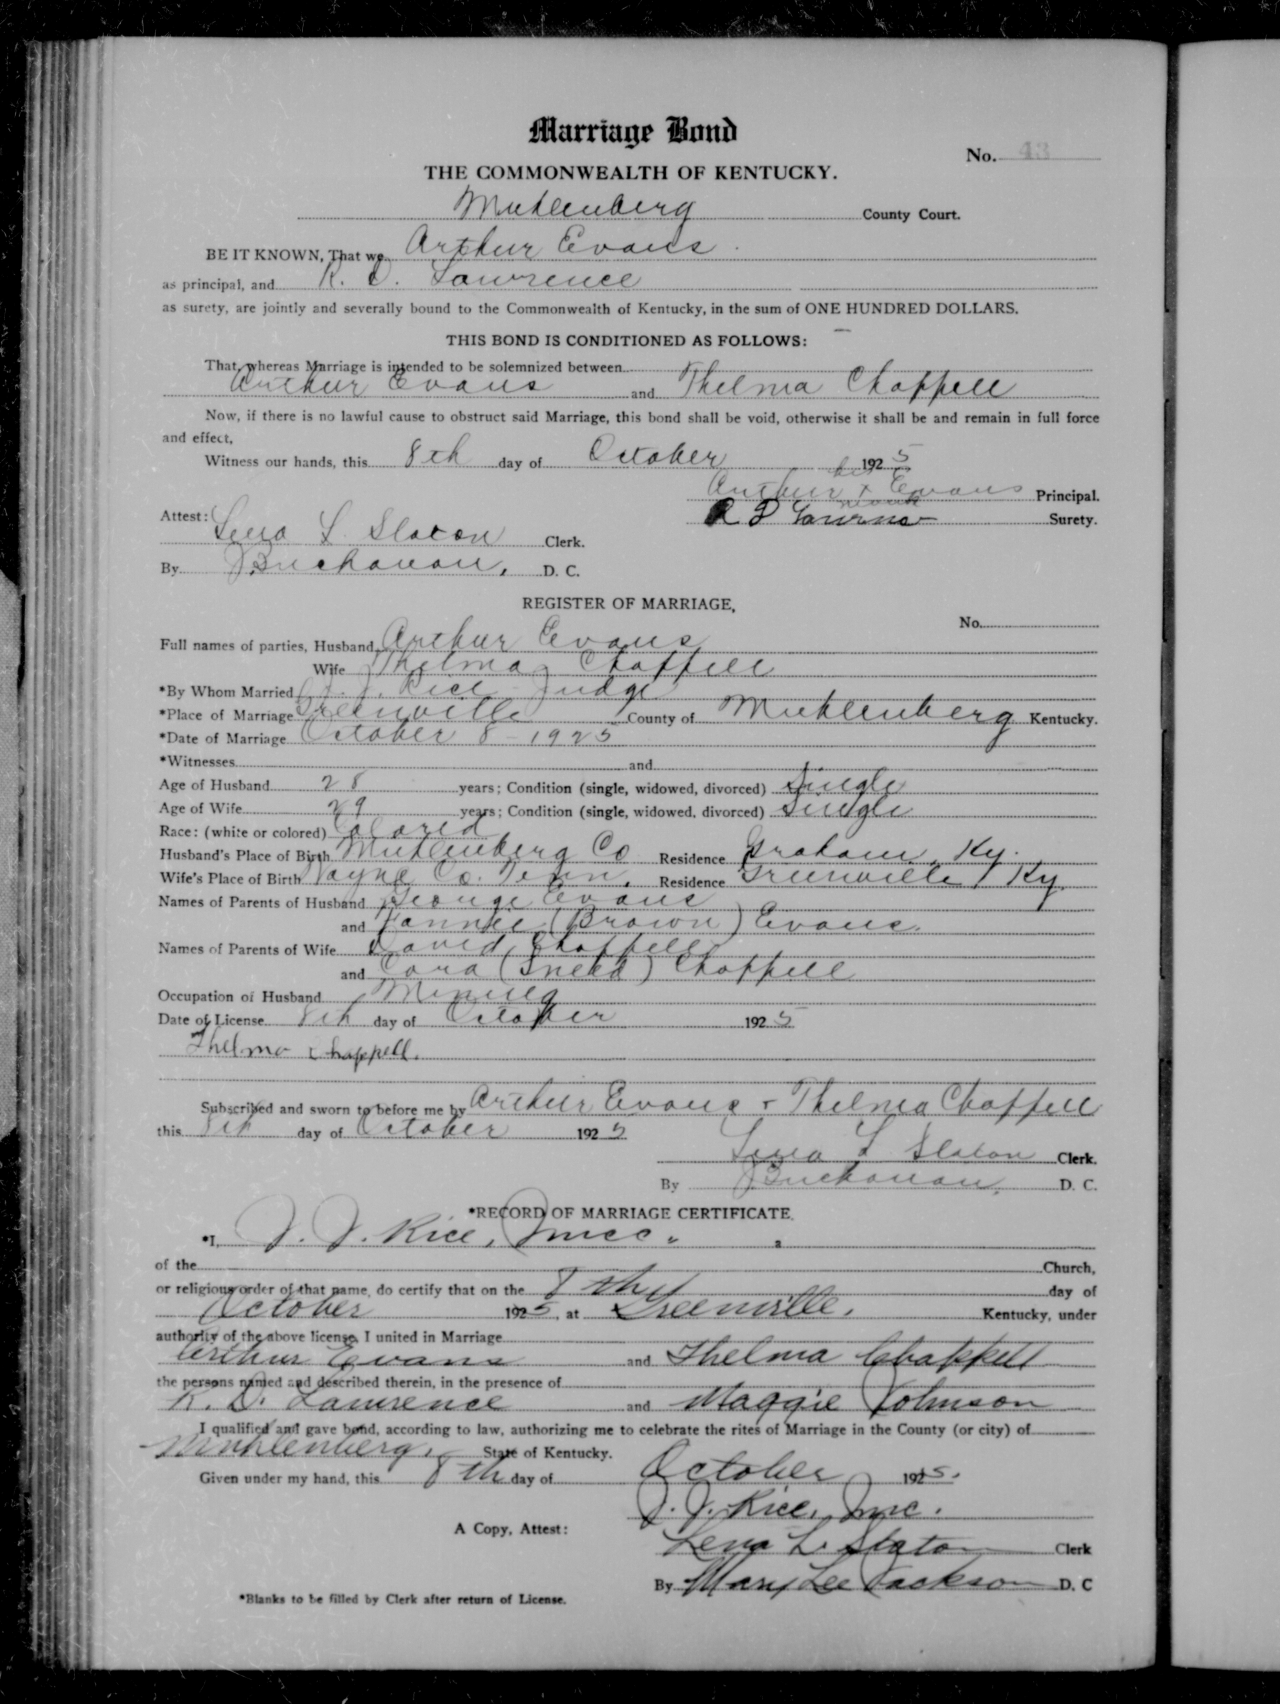 Marriage Bond
No. 43
THE COMMONWEALTH OF KENTUCKY.
Muhlenberg County Court.
BE IT KNOWN, That we Arthur Evans
as principal, and R. D. Lawrence
as surety, are jointly and severally bound to the Commonwealth of Kentucky, in the sum of ONE HUNDRED DOLLARS.
THIS BOND IS CONDITIONED AS FOLLOWS:
That, whereas Marriage is intended to be solemnized between
Arthur Evans and Thelma Chappell
Now, if there is no lawful cause to obstruct said Marriage, this bond shall be void, otherwise it shall be and remain in full force
and effect,
Witness our hands, this 8th day of October 1925
his
Arthur x Evans Principal.
mark
Attest: R D Lawrence Surety.
Lena L. Slaton Clerk.
By J Buchanan, D. C.
REGISTER OF MARRIAGE,
No.
Full names of parties, Husband Arthur Evans
Wife Thelma Chappell
*By Whom Married J. J. Rice Judge
*Place of Marriage Greenville County of Muhlenberg Kentucky.
*Date of Marriage October 8 - 1925
*Witnesses and
Age of Husband 28 years; Condition (single, widowed, divorced) Single
Age of Wife 29 years; Condition (single, widowed, divorced) Single
Race: (white or colored) Colored
Husband's Place of Birth Muhlenberg Co Residence Graham, Ky.
Wife's Place of Birth Wayne Co. Tenn. Residence Greenville, Ky.
Names of Parents of Husband George Evans
and Fannie (Brown) Evans.
Names of Parents of Wife David Chappell
and Cora (Sneed) Chappell
Occupation of Husband Mining
Date of License 8th day of October 1925
Thelma Chappell.
Subscribed and sworn to before me by Arthur Evans + Thelma Chappell
this 8th day of October 1925
Lena L Slaton Clerk.
By J Buchanan. D. C.
*RECORD OF MARRIAGE CERTIFICATE.
*I, J. J. Rice, Jmcc.
of the Church,
or religious order of that name, do certify that on the 8th day of
October 1925, at Greenville, Kentucky, under
authority of the above license, I united in Marriage
Arthur Evans and Thelma Chappell
the persons named and described therein, in the presence of
R. D. Lawrence and Maggie Johnson
I qualified and gave bond, according to law, authorizing me to celebrate the rites of Marriage in the County (or city) of
Muhlenberg, State of Kentucky.
Given under my hand, this 8th day of October 1925.
J. J. Rice, Jmc.
A Copy, Attest:
Lena L. Slaton Clerk
By Mary Lee Jackson D. C
*Blanks to be filled by Clerk after return of License.